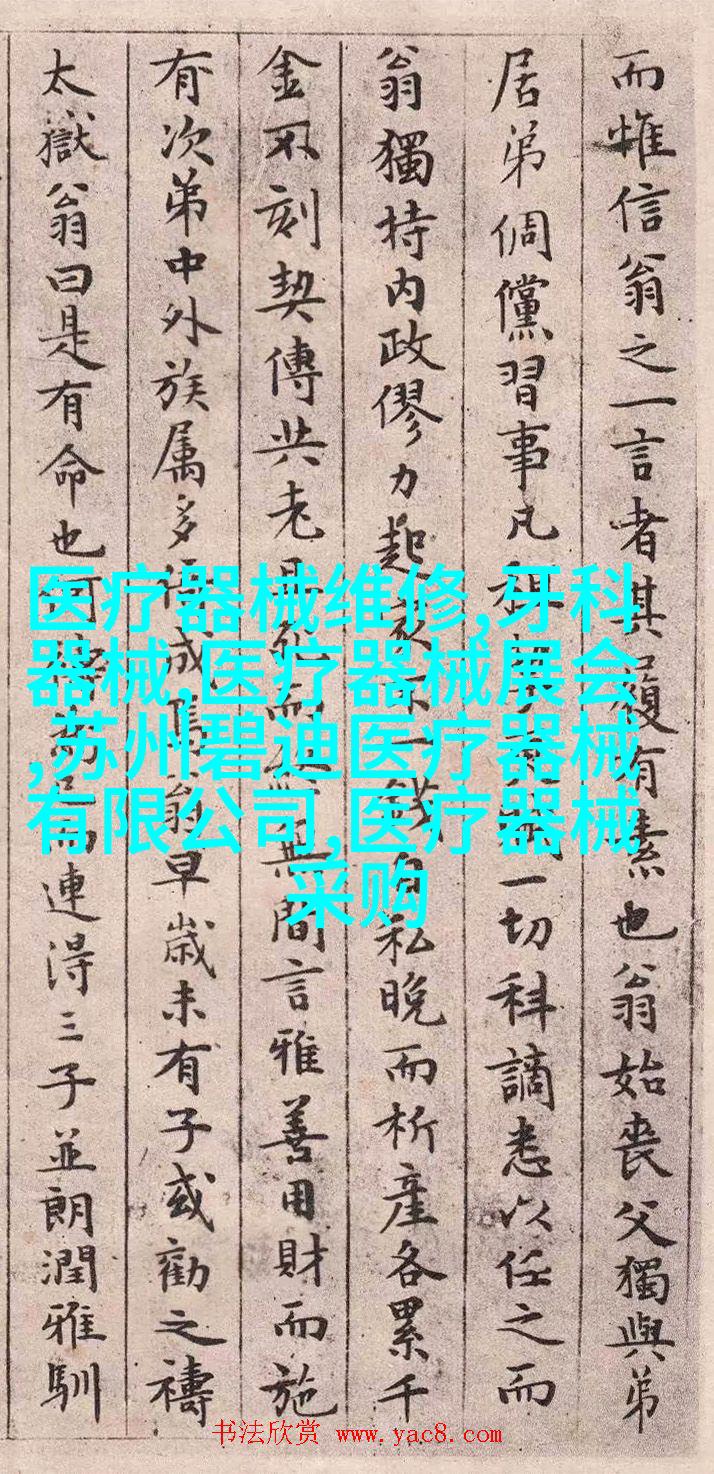 而惟信翁之一言者其履有素也翁始喪父獨與弟
居弟倜儻習事凡租一切科謫悉以任之而
翁獨持内政僇力起家不一錢自私晚而析產各累千
金不刻契傳共老無間言雅善用財而施
有次弟中外族属多倚成隱翁早歲未有子或勸之禱
太嶽翁曰是有命也何禱為已而連得三子並朗潤雅馴
医疗器械维修,牙科
器械,医疗器械展会
,苏州碧迪医疗器械
有限公司,医疗器械
采购
书法欣赏 www.yac8.com